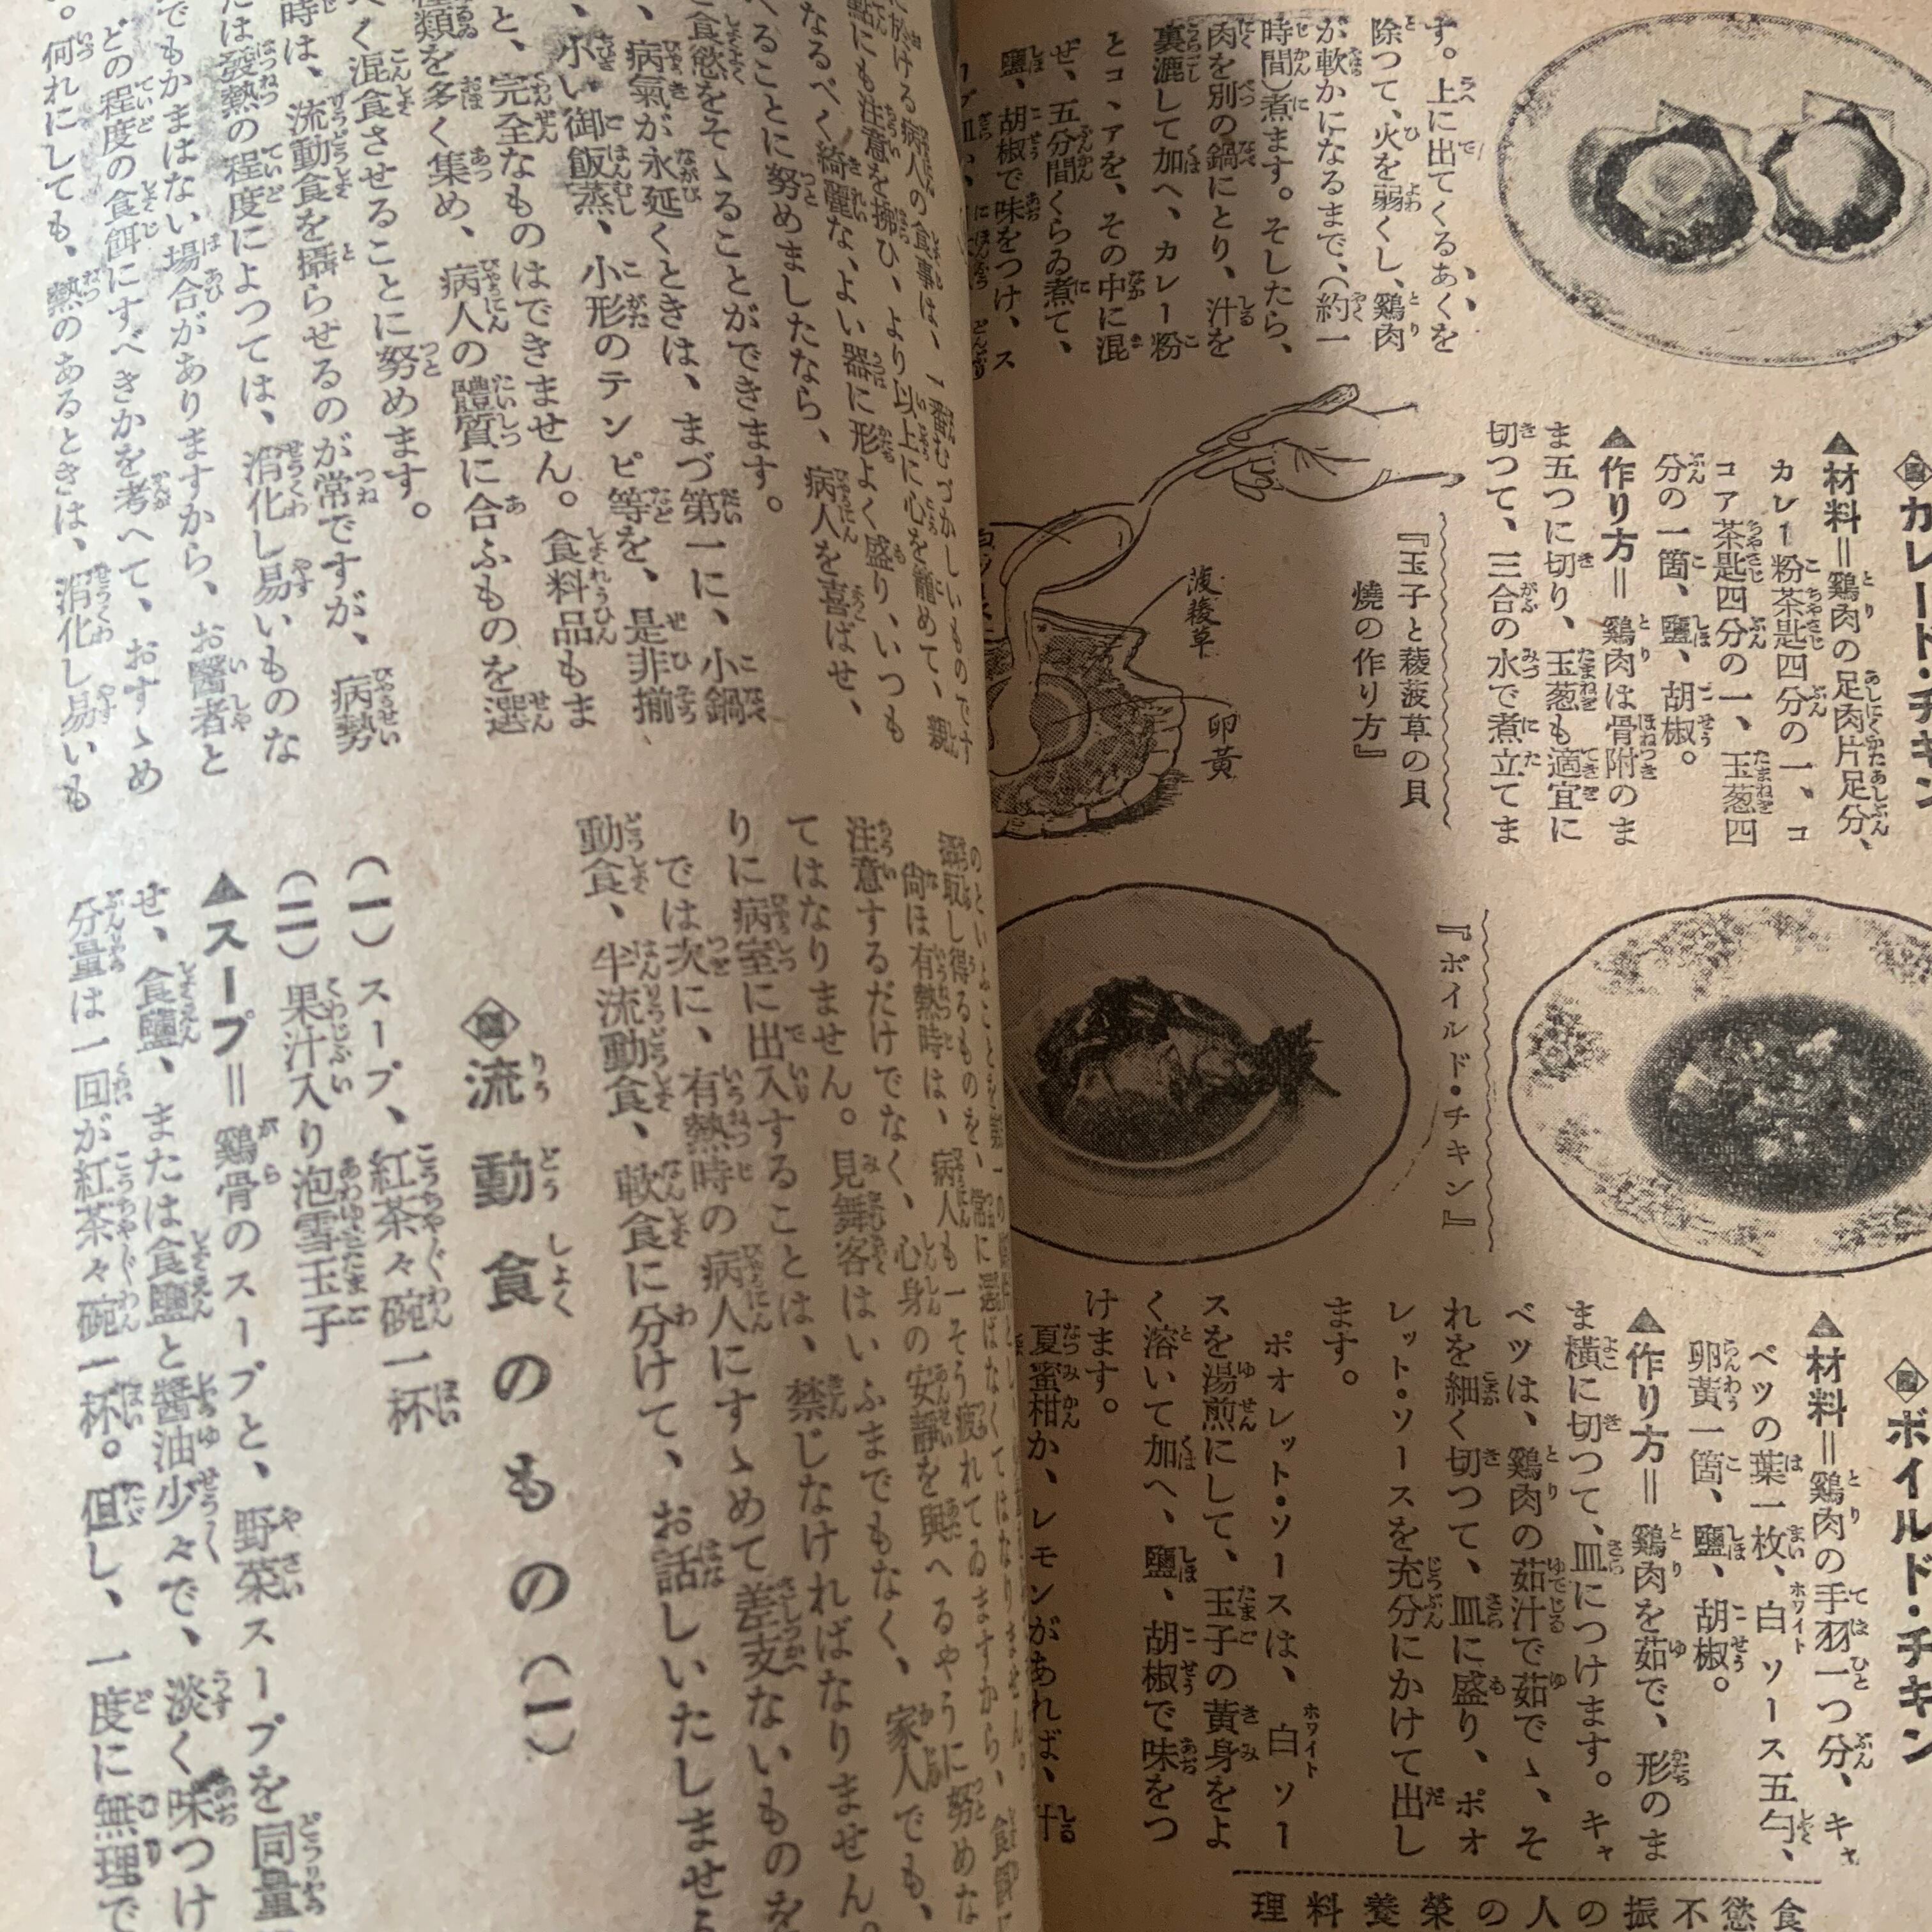 カレード・チキン
▲材料=鷄肉の足肉片足分、
カレー粉茶匙四分の一、コ
コア茶匙四分の一、玉葱四
分の一箇、鹽、胡椒。
▲作り方=鷄肉は骨附のま
ま五つに切り、玉葱も適宜に
切つて、三合の水で煮立てま
す。上に出てくるあくを
除つて、火を弱くし、鷄肉
が軟かになるまで、(約一
時間)煮ます。そしたら、
肉を別の鍋にとり、汁を
裏漉して加へ、カレー粉
とコヽアを、その中に混
ぜ、五分間くらゐ煮て、
鹽、胡椒で味をつけ、ス
『玉子と菠薐草の貝
燒の作り方』
菠薐草
卵黃
『ボイルド・チキン』
ボイルド・チキン
▲材料=鷄肉の手羽一つ分、キャ
ベツの葉一枚、白ソース五勺、
卵黃一箇、鹽、胡椒。
▲作り方=鷄肉を茹で、形のま
ま橫に切つて、皿につけます。キャ
ベツは、鷄肉の茹汁で茹でゝ、そ
れを細く切つて、皿に盛り、ポオ
レット・ソースを充分にかけて出し
ます。
ポオレット・ソースは、白ソー
スを湯煎にして、玉子の黃身をよ
く溶いて加へ、鹽、胡椒で味をつ
けます。
夏蜜柑か、レモンがあれば、汁
食慾不振の人の榮養料理
に於ける病人の食事は、一番むづかしいものです
點にも注意を拂ひ、より以上に心を籠めて、親
なるべく綺麗な、よい器に形よく盛り、いつも
へることに努めましたなら、病人を喜ばせ、
食慾をそゝることができます。
、病氣が永延くときは、まづ第一に、小鍋
、小い御飯蒸、小形のテンピ等を、是非揃
と、完全なものはできません。食料品もま
種類を多く集め、病人の體質に合ふものを選
く混食させることに努めます。
時は、流動食を攝らせるのが常ですが、病勢
たは發熱の程度によつては、消化し易いものな
でもかまはない場合がありますから、お醫者と
どの程度の食餌にすべきかを考へて、おすゝめ
。何れにしても、熱のあるときは、消化し易いも
攝取し得るものを、常に選ばなくてはなりません。
尙ほ有熱時は、病人も一そう疲れてゐますから、食餌に
注意するだけでなく、心身の安靜を與へるやうに努めな
てはなりません。見舞客はいふまでもなく、家人でも、
りに病室に出入することは、禁じなければなりません。
では次に、有熱時の病人にすゝめて差支ないものを
動食、半流動食、軟食に分けて、お話しいたしませう
流動食のもの(一)
(一)スープ、紅茶々碗一杯
(二)果汁入り泡雪玉子
▲スープ=鷄骨のスープと、野菜スープを同量
せ、食鹽、または食鹽と醬油少々で、淡く味つけ
分量は一回が紅茶々碗一杯。但し、一度に無理で